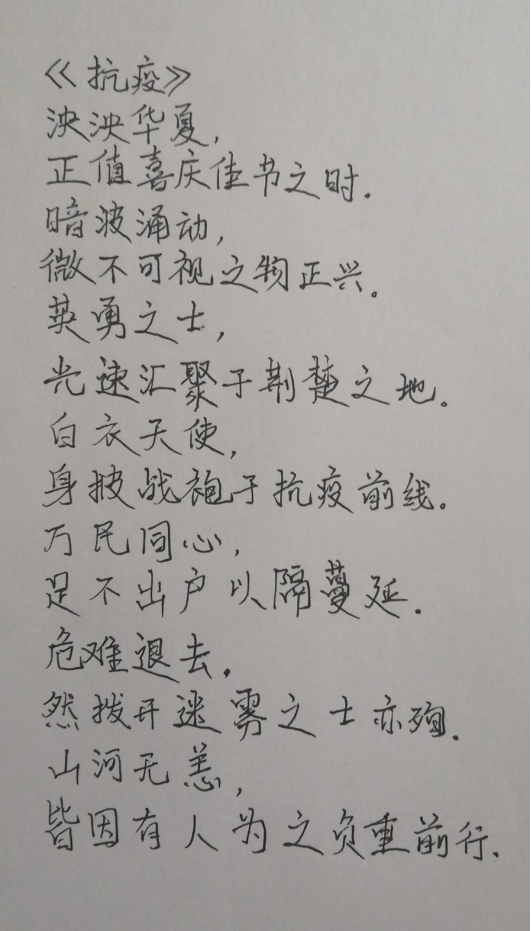 《抗疫》
泱泱华夏,
正值喜庆佳节之时.
暗波涌动,
微不可视之物正兴。
英勇之士,
光速汇聚于荆楚之地。
白衣天使,
身披战袍于抗疫前线。
万民同心,
足不出户以隔蔓延.
危难退去.
然拨开迷雾之士亦殉.
山河无恙,
皆因有人为之负重前行.